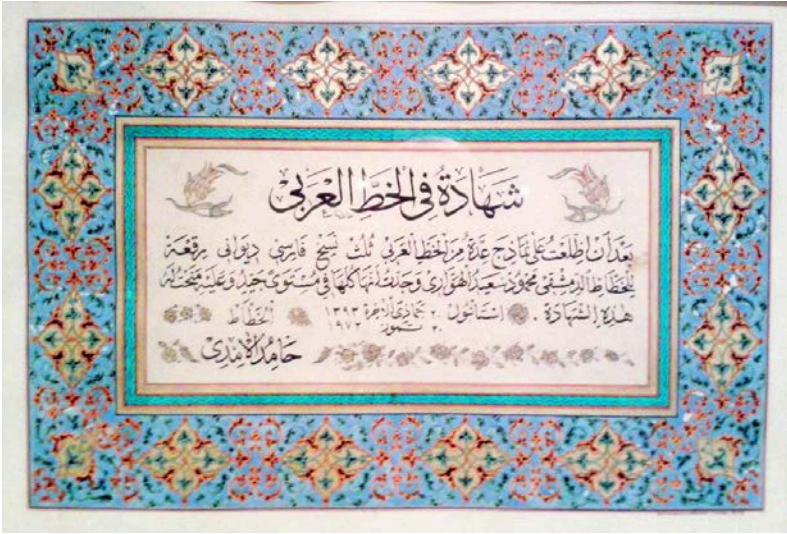 شهادة في الخط العربي
بعد أن اطلعت على نماذج عدة من الخط العربي ثلث نسخ فارسي ديواني رقعة
للخطاط الدمشقي محمود سعيد الهواري وجدت أنها كلها في مستوى جيد وعليه منحت له
هذه الشهادة . استانبول ٢٠ جمادى الآخرة ١٣٩٣ الخطاط
٢٠ تموز ١٩٧٣
حامد الآمدي